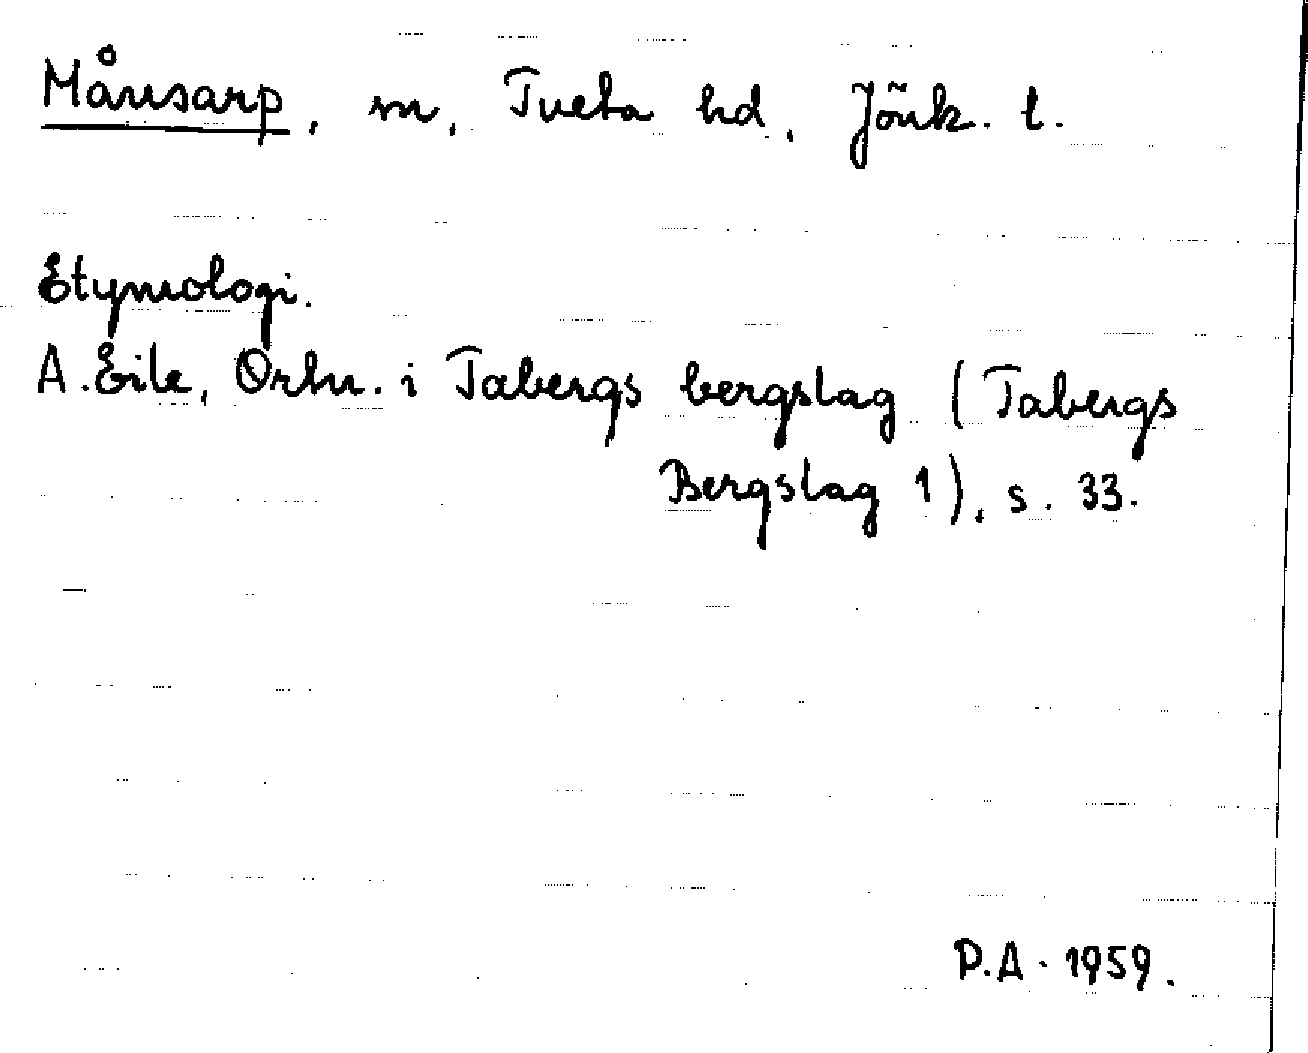 Månsarp, sn, Tveta hd, Jönk. l.
Etymologi.
A. Eile, Ortn. i Tabergs bergslag (Tabergs
Bergslag 1), s. 33.
P.A. 1959.